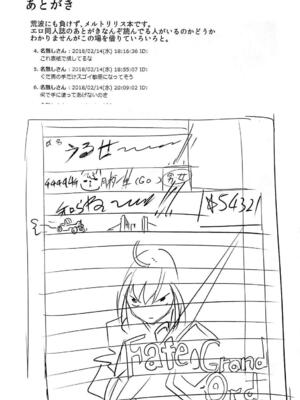 あとがき
荒波にも負けず、メルトリリス本です。
エロ同人誌のあとがきなんぞ読んでる人がいるのかどうか
わかりませんがこの場を借りていろいろと。
4. 名無しさん：2018/02/14(水) 18:16:36 ID:
これ表紙で損してるな
5. 名無しさん：2018/02/14(水) 18:55:07 ID:
ぐだ男の手だけスゴイ敏感になってそう
6. 名無しさん：2018/02/14(水) 19:09:02 ID:
何で手に塗ってあげないのさ
うるせ
(Go)
知らねェ
54321
Fate:Grand
Ord